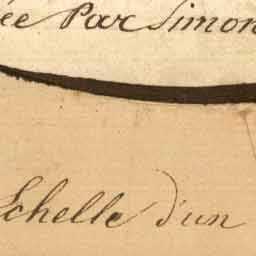 ée Par Simon
Echelle d'un